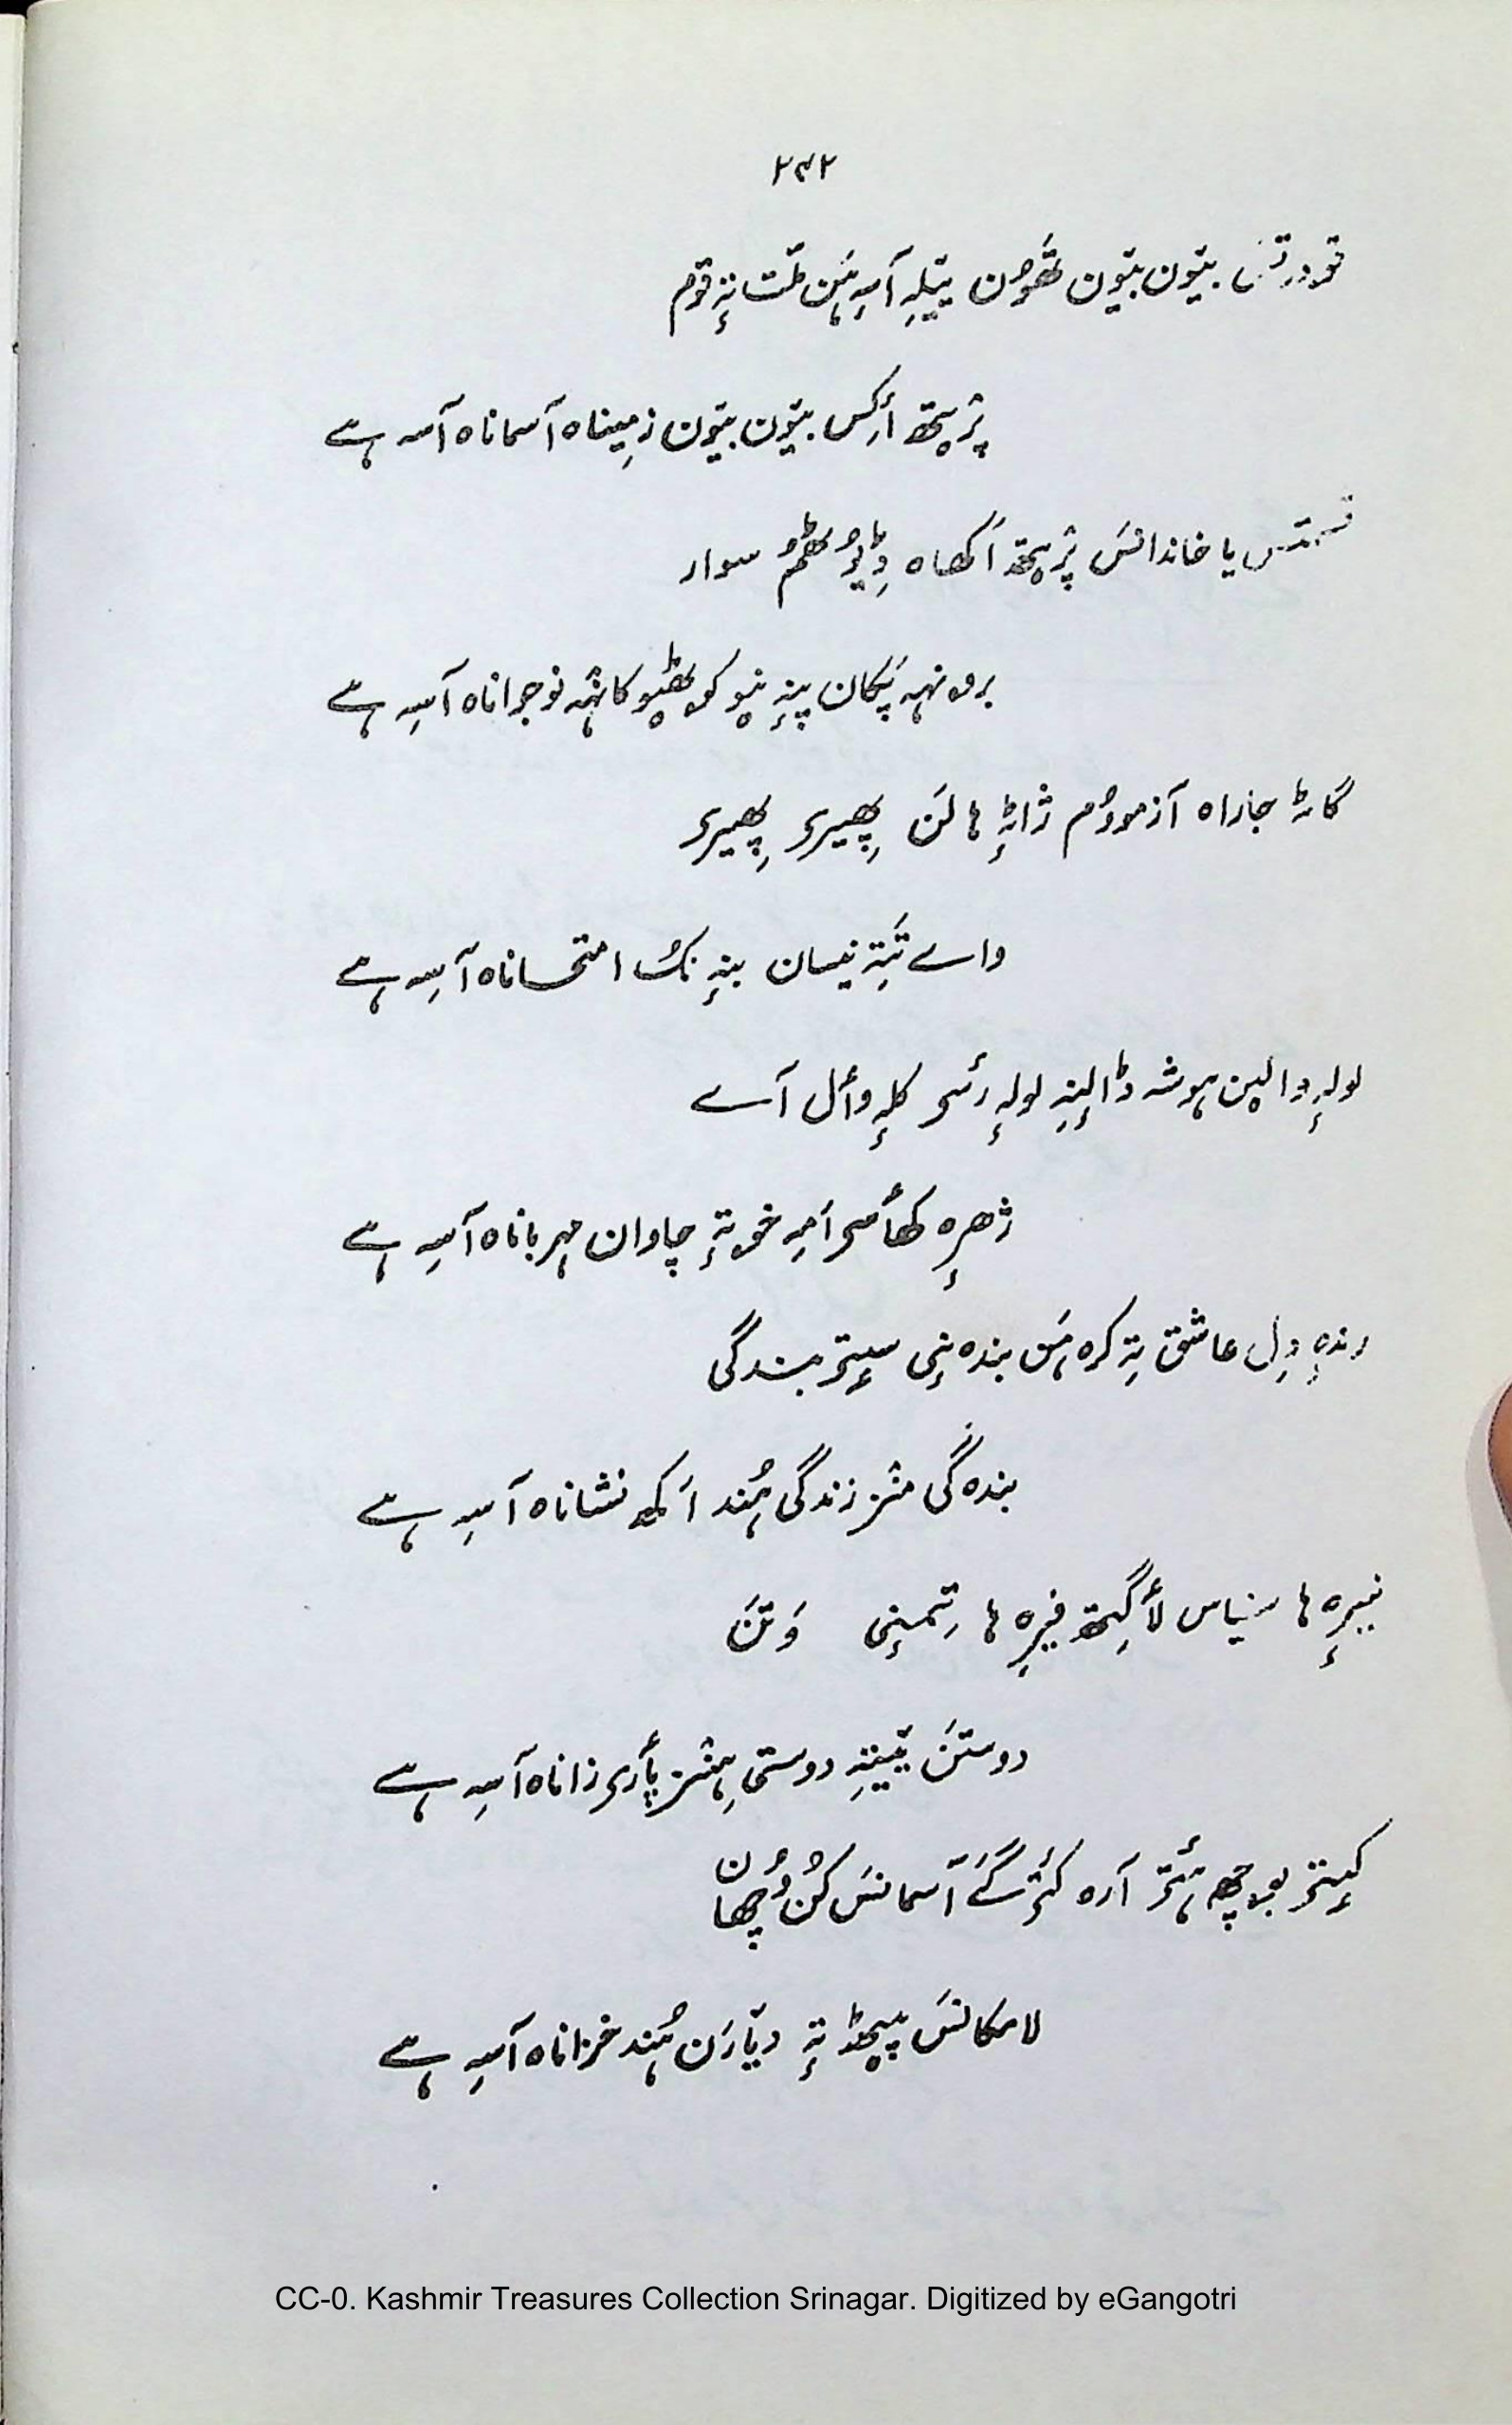 ۲۴۲
قودرتس بیٚون بیٚون تھَوُن ییٚلہِ آسہِ ہَن ملّت تہٕ قوم
پرٛیتھ أکِس بیٚون بیٚون زمیٖناہ آسماناہ آسہِ ہے
قسمتس یا خاندانَس پرٛیتھ اَکھاہ سوار
برونٛہہ پَکان پنہٕ نیو کوٹھیو کانٛہہ نوجواناہ آسہِ ہے
گاٹا جاراہ آزمووُم ژاٹہٕ ہالَن پھیٖرۍ پھیٖرۍ
واے تَتہِ نیسان بنہٕ نُک امتحاناہ آسہِ ہے
لولہٕ والین ہوشہ ڈالنہِ لولہٕ رٔسۍ کلہٕ وأل آے
زہرٕہ کھأسۍ اَمہِ خوتہٕ چاوان مہرباناہ آسہِ ہے
رندہٕ دِل عاشق تہِ کرہ ہَن بندہ نٕی سیٖتۍ بندگی
بندہ گی منٛز زندگی ہُند اَکھ نشاناہ آسہِ ہے
نیرٕہ ہا سنیاس لٲگِتھ پھیرٕہ ہا تِمنٕی وَتَن
دوستَن نِیٚنہِ دوستی ہِنٛز پٲرۍ زاناہ آسہِ ہے
کیٖتۍ بوچھہِ ۂتۍ آرہ کٔتۍ گَے آسمانَس کُن وُچھان
لامکانَس پیٚٹھ تہٕ دیٚارَن ہُند خزاناہ آسہِ ہے
CC-0. Kashmir Treasures Collection Srinagar. Digitized by eGangotri